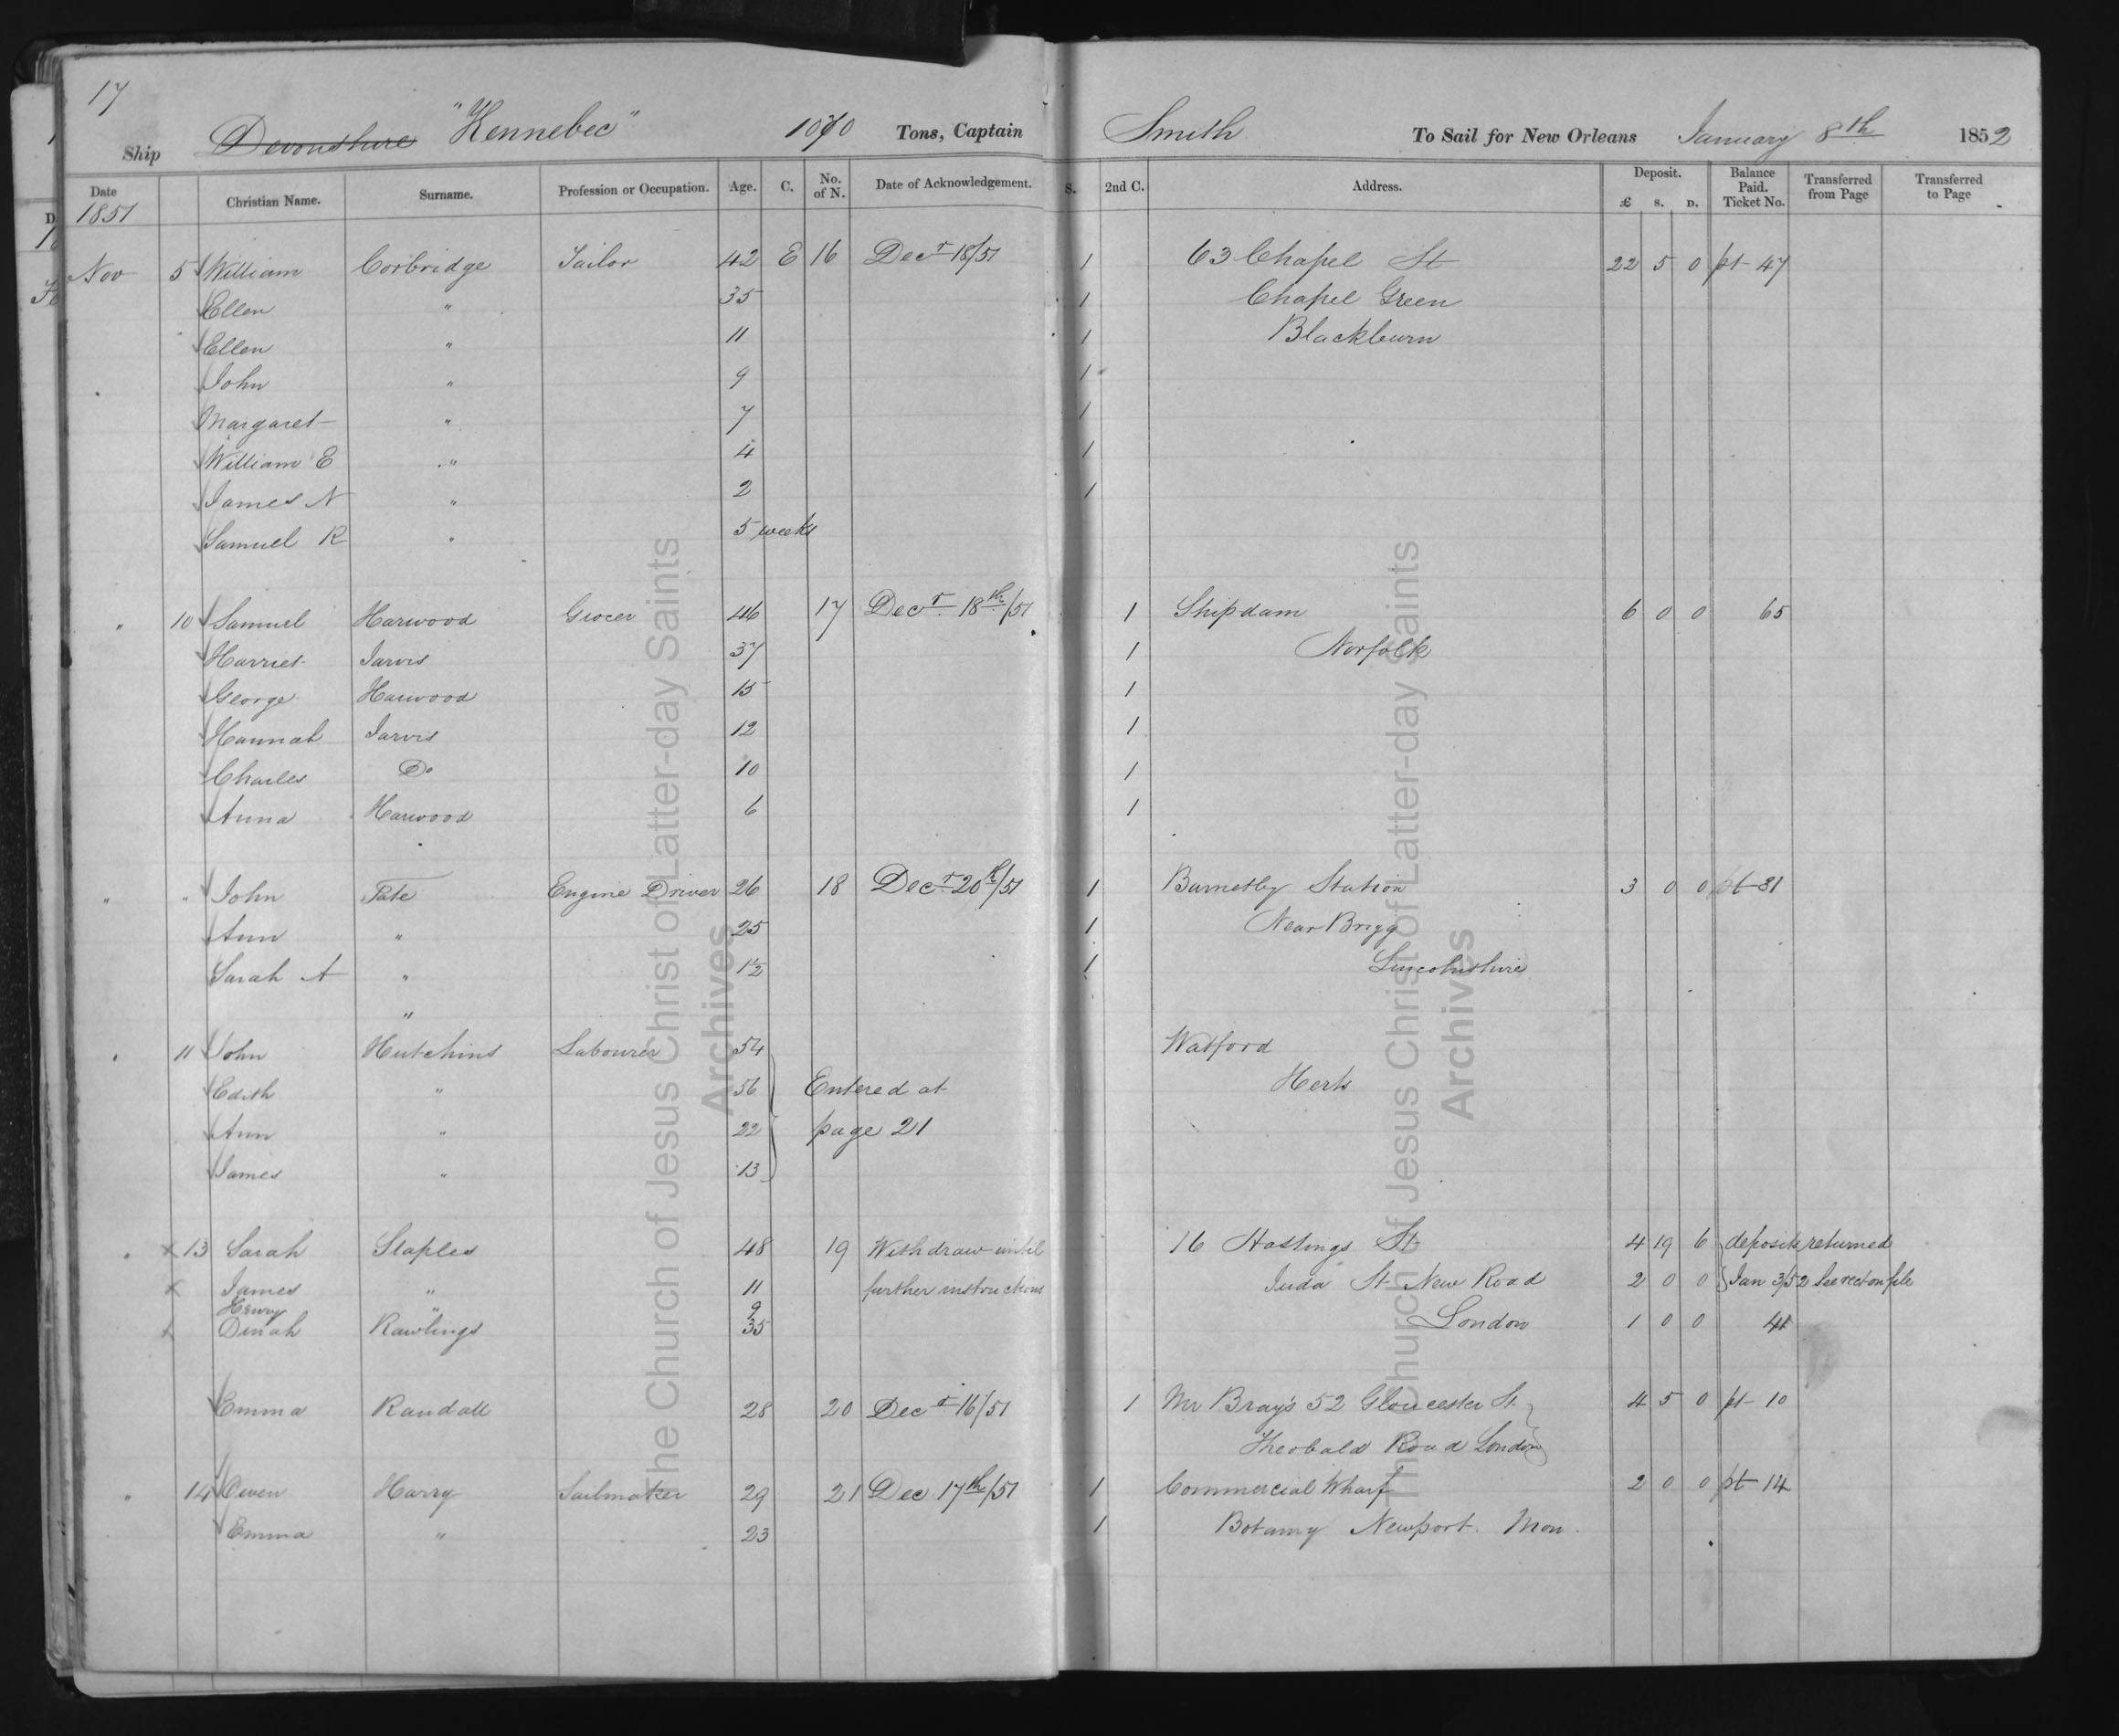 17
Ship Devonshire "Kennebec" 1070 Tons, Captain Smith To Sail for New Orleans January 8th 1852
Date Christian Name. Surname. Profession or Occupation. Age. C. No. of N. Date of Acknowledgement. S. 2nd C. Address. Deposit. £ S. D. Balance Paid. Ticket No. Transferred from Page Transferred to Page
1851
Nov 5 William Corbridge Tailor 42 E 16 Decr 18/51 1 63 Chapel St 22 5 0 pt 47
Ellen " 35 1 Chapel Green
Ellen " 11 1 Blackburn
John " 9 1
Margaret " 7 1
William E " 4 1
James N " 2 1
Samuel R " 5 weeks
" 10 Samuel Harwood Grocer 46 17 Decr 18th/51 1 Shipdam 6 0 0 65
Harriet Jarvis 37 1 Norfolk
George Harwood 15 1
Hannah Jarvis 12 1
Charles Do 10 1
Anna Harwood 6 1
" " John Tate Engine Driver 26 18 Decr 20th/51 1 Barnetby Station 3 0 0 pt 81
Ann " 25 1 Near Brigg
Sarah A " 1½ 1 Lincolnshire
"
" 11 John Hutchins Labourer 54 Watford
Edith " 56 Entered at Herts
Ann " 22 page 21
James " 13
" x 13 Sarah Staples 48 19 Withdraw until 16 Hastings St 4 19 6 deposits returned
x James " 11 further instructions Juda St New Road 2 0 0 Jan 3/52 See rect on file
Henry " 9
x Dinah Rawlings 35 London 1 0 0 41
Emma Randall 28 20 Decr 16/51 1 Mr Bray's 52 Gloucester St 4 5 0 pt 10
Theobald Road London
" 14 Owen Harry Sailmaker 29 21 Dec 17th/51 1 Commercial Wharf 2 0 0 pt 14
Emma " 23 1 Botany Newport. Mon.
The Church of Jesus Christ of Latter-day Saints
Archives
The Church of Jesus Christ of Latter-day Saints
Archives